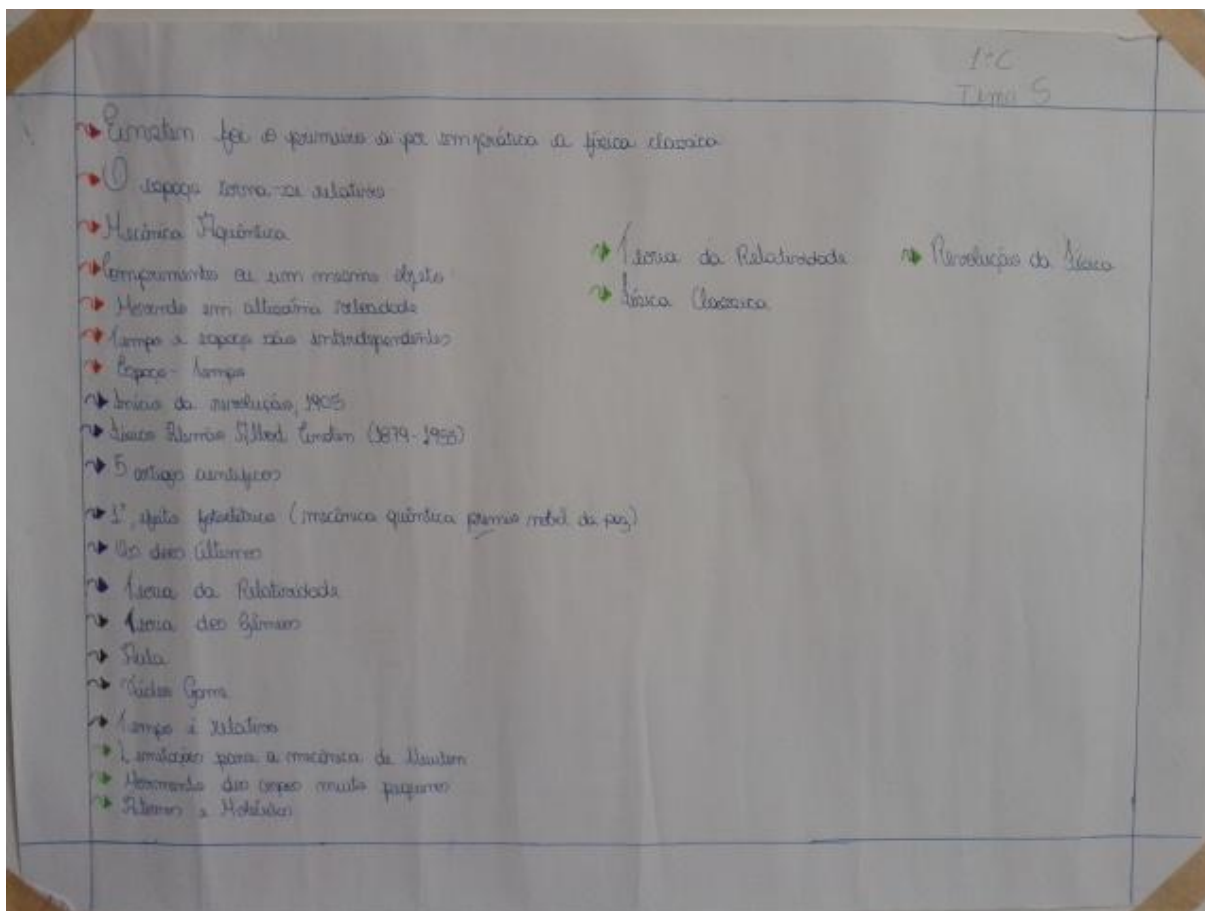 1ºC
Tema 5
Einstein foi o primeiro a por em prática a física classica
O espaço torna-se relativo
Mecânica Aquântica
Comprimento eu um mesmo objeto
Movendo em altissima velocidade
Tempo e espaço são interdependentes
Espaço-tempo
Início da revolução, 1905
físico Alemão Albert Einstein (1879-1955)
5 artigos científicos
1º, efeito fotoelétrico (mecânica quântica premio nobel da paz)
Os dois últimos
Teoria da Relatividade
Teoria dos Gêmeos
Aula
Vídeo Game
Tempo é relativo
Limitações para a mecânica de Newton
Movimento dos corpos muito pequenos
Átomos e Moléculas
Teoria da Relatividade
física Classica
Revolução da física